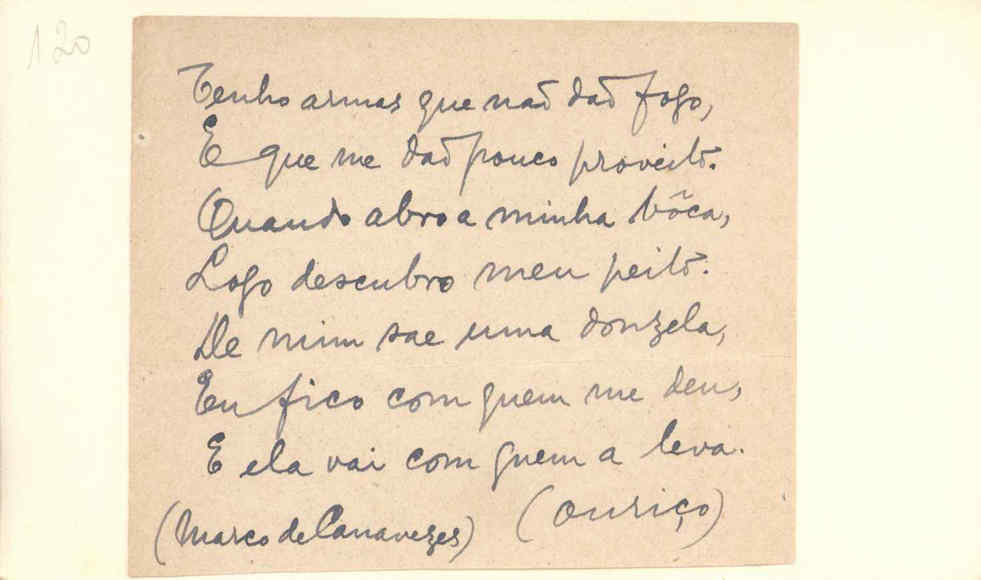 120
Tenho armas que não dão fogo,
E que me dão pouco proveito.
Quando abro a minha bôca,
Logo descubro meu peito.
De mim sae uma donzela,
Eu fico com quem me deu,
E ela vai com quem a leva.
(Marco de Canavezes) (Ouriço)